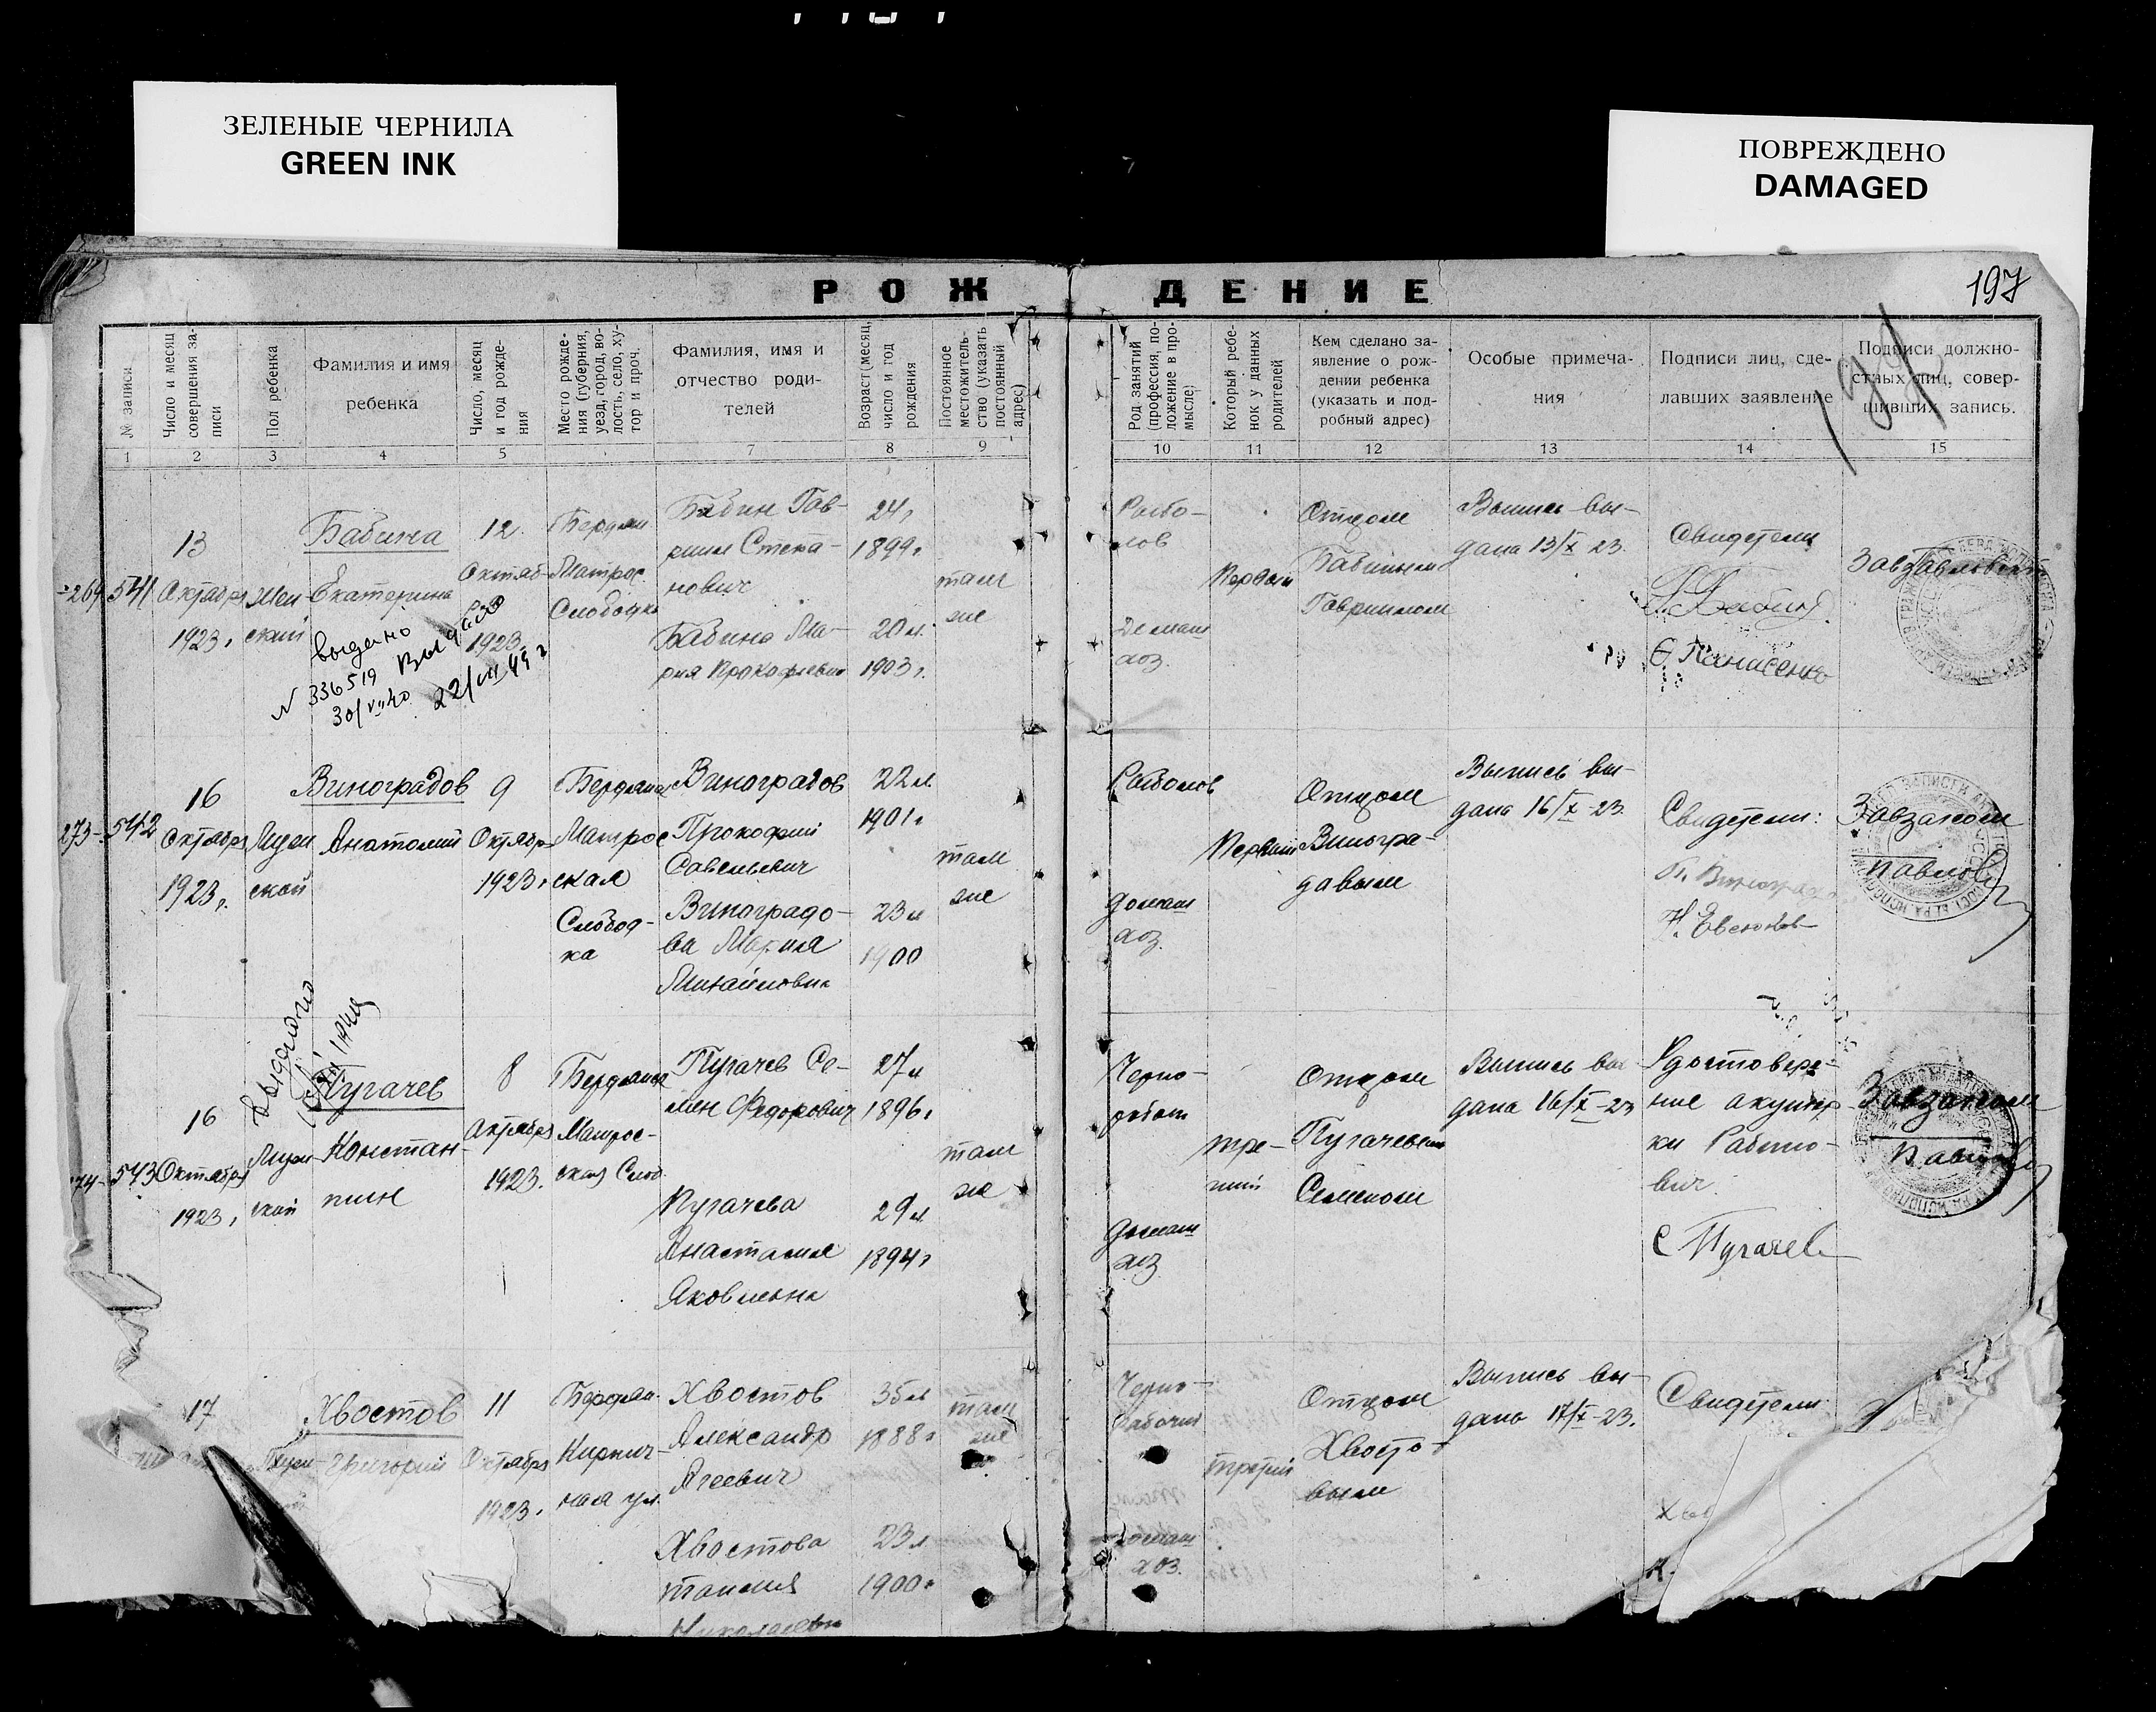 ЗЕЛЕНЫЕ ЧЕРНИЛА
GREEN INK
ПОВРЕЖДЕНО
DAMAGED
РОЖДЕНИЕ
197
№ записи
Число и месяц совершения записи
Пол ребенка
Фамилия и имя ребенка
Число, месяц и год рождения
Место рождения (губерния, уезд, город, волость, село, хутор и проч.
Фамилия, имя и отчество родителей
Возраст (месяц, число и год рождения
Постоянное местожительство (указать постоянный адрес)
Род занятий (профессия, положение в промысле)
Который ребенок у данных родителей
Кем сделано заявление о рождении ребенка (указать и подробный адрес)
Особые примечания
Подписи лиц, сделавших заявление
Подписи должностных лиц, совершивших запись.
1 2 3 4 5 7 8 9 10 11 12 13 14 15
269 541
13
Октября
1923 г.
Жен
ский
Бабина
Екатерина
выдано
№ 336519
30/VII 40
22/VII 49 г
12
Октяб
1923
Бердян
Матрос
Слободка
Бабин Гав-
риил Степа-
нович
Бабина Ма-
рия Прокофиевна
24 г
1899 г
20 л.
1903 г.
там
же
Рыбо-
лов
Домаш
хоз.
Первый
Отцом
Бабиным
Гавриилом
Выпись вы-
дана 13/X 23.
Свидетели
273- 542
16
Октября
1923 г.
Муж
ской
Виноградов
Анатолий
9
Октябр
1923 г
Бердянск
Матрос
ская
Слобод-
ка
Виноградов
Прокофий
Савельевич
Виноградо-
ва Мария
Михайловна
22 л.
1901 г
23 л
1900
там
же
Рыболов
домаш
хоз.
Первый
Отцом
Виногра-
давым
Выпись вы-
дана 16/X-23.
Свидетели:
Н. Евсюков
Завзагсом
Павлов
74- 543
16
Октября
1923 г
Муж
ской
выдано
Пугачев
Констан-
тин
8
Октября
1923.
Бердянск
Матрос-
ская Слоб.
Пугачев Се-
мен Федорович
Пугачева
Анастасия
Яковлевна
27 л
1896 г
29 л.
1894 г
там
же
Черно-
работ
домаш
хоз.
тре-
тий
Отцом
Пугачевым
Семеном
Выпись вы-
дана 16/X-23
Удостовере-
ние акушер
ки
С Пугачев
Завзагсом
Павлов
17
Муж
Хвостов
Григорий
11
Октября
1923 г
Бердян.
Кирпич-
ная ул.
Хвостов
Александр
Агеевич
Хвостова
Николаевн
35 л
1888 г
23 л
1900 г
там
же
Черно-
рабочий
домаш
хоз.
третий
Отцом
Хвосто-
вым
Выпись вы-
дана 17/X-23.
Свидетели: